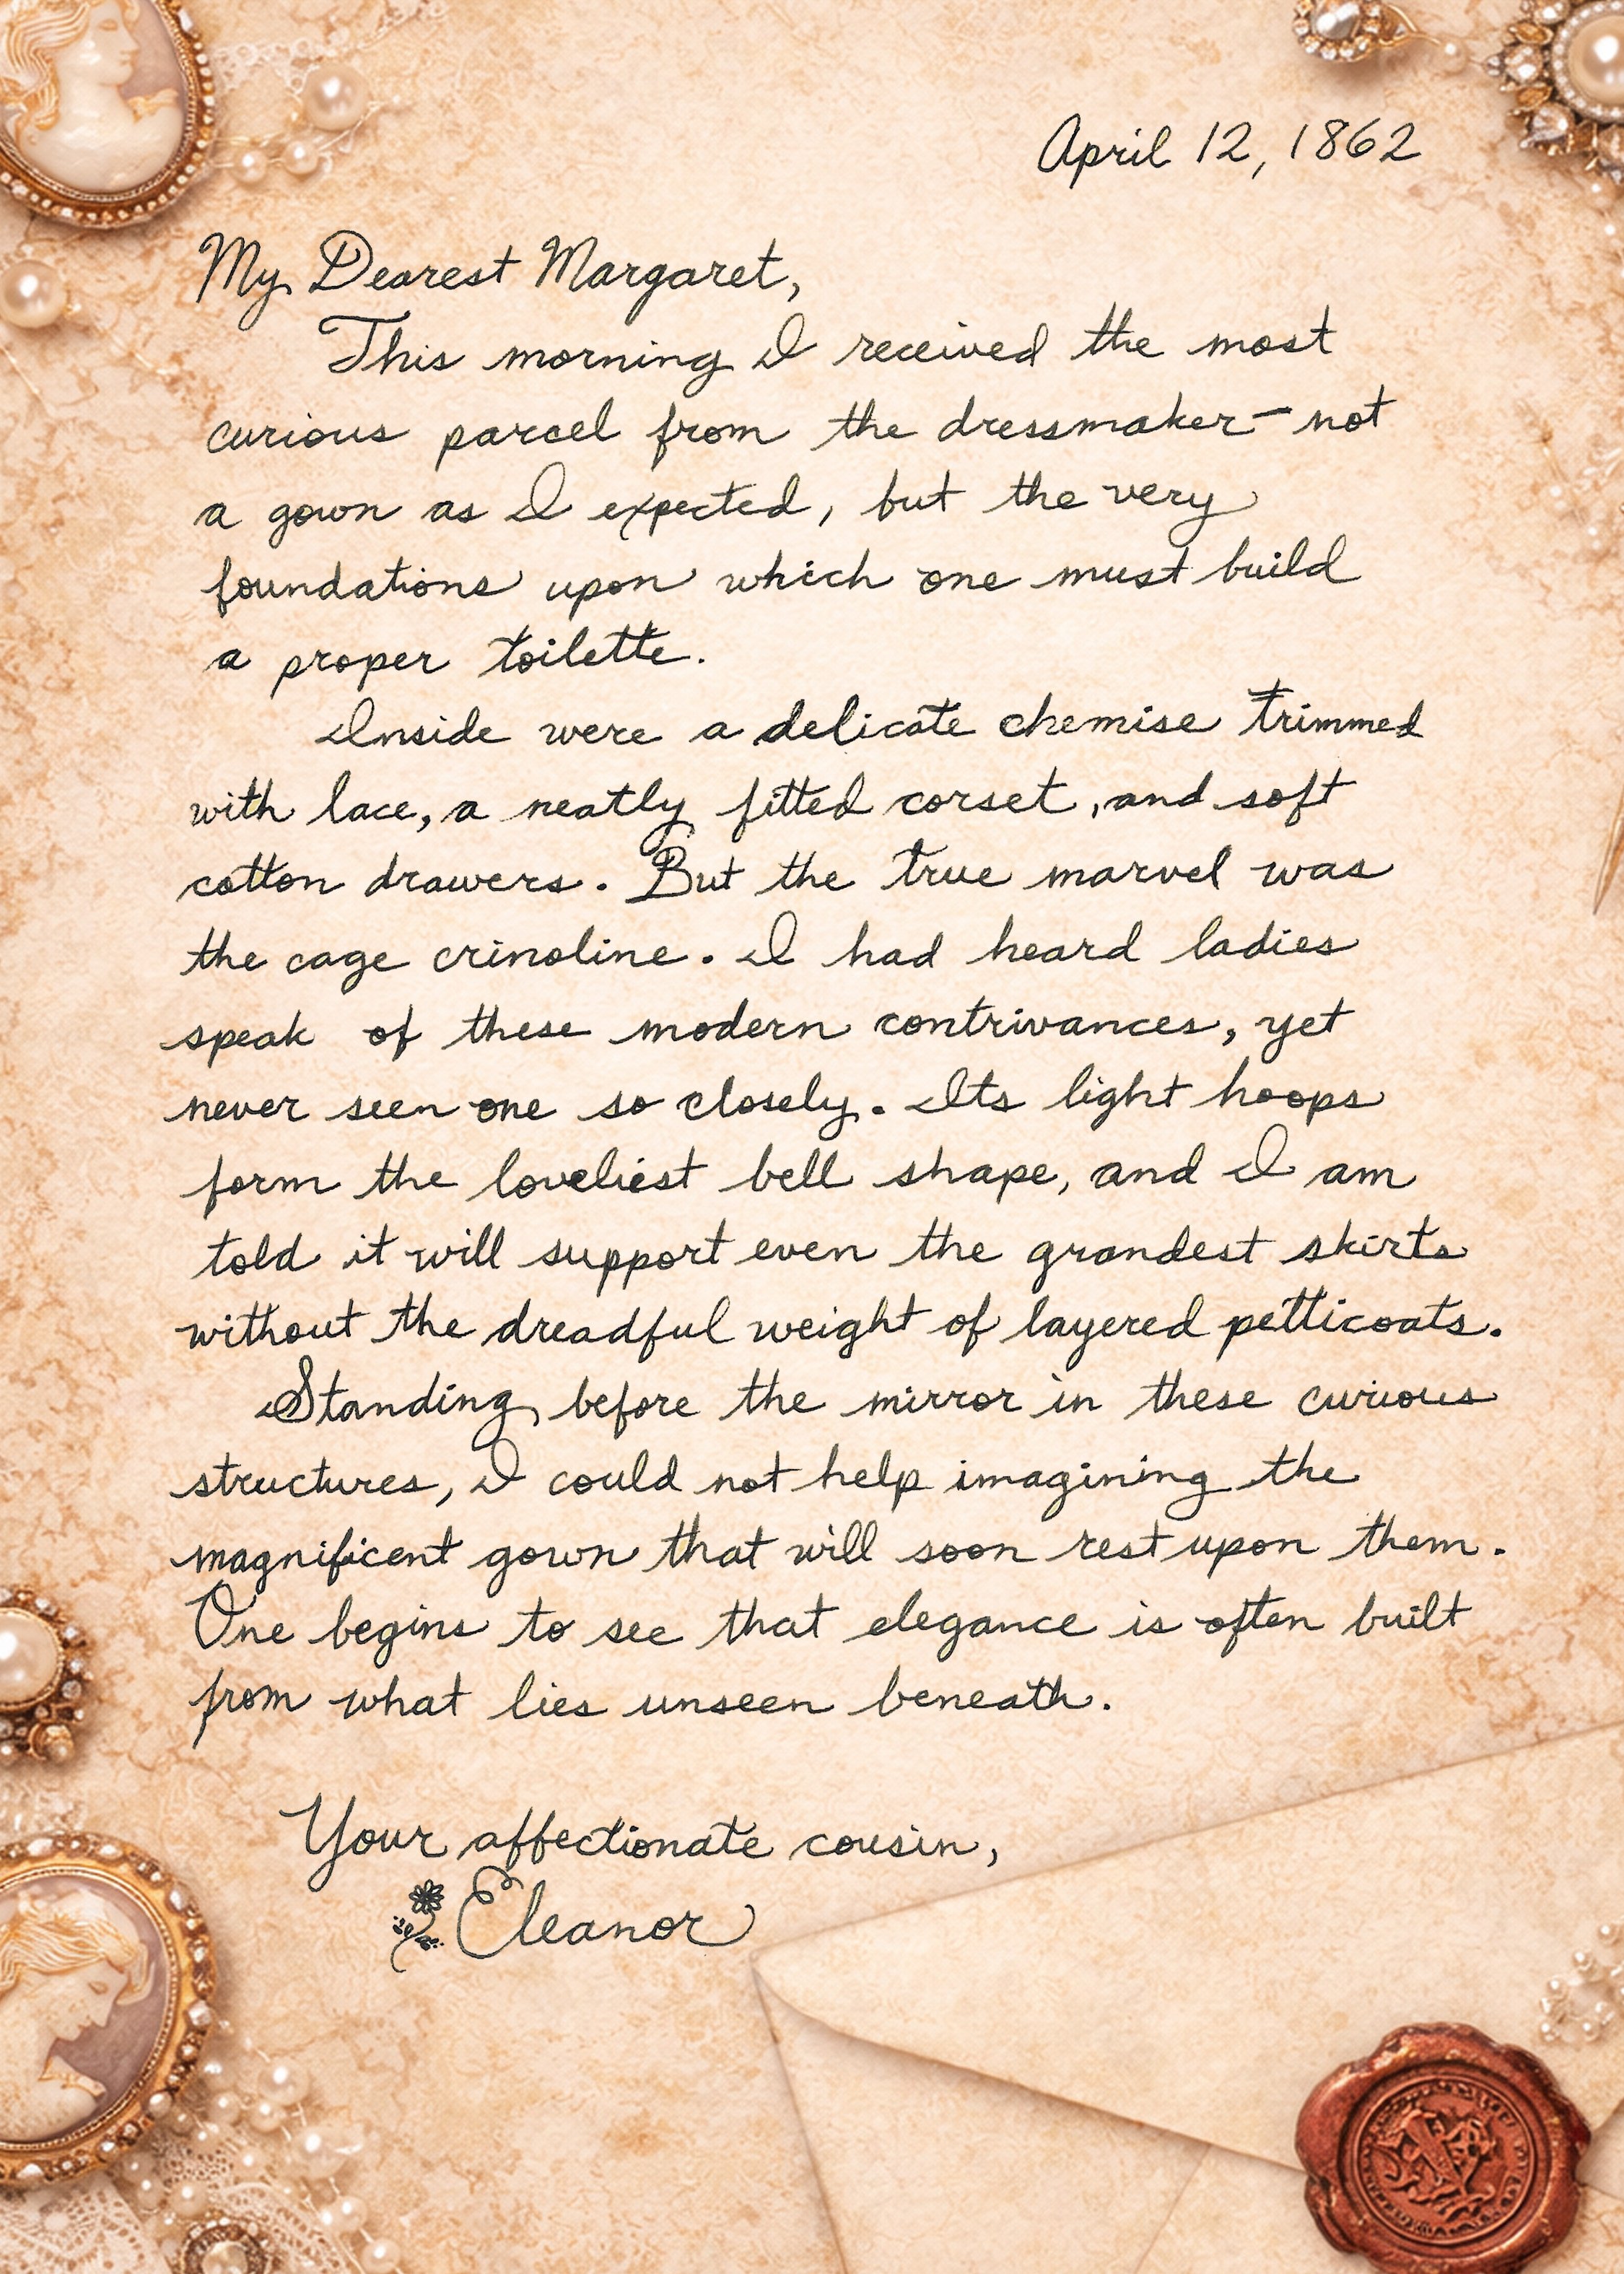 April 12, 1862
My Dearest Margaret,
This morning I received the most
curious parcel from the dressmaker–not
a gown as I expected, but the very
foundations upon which one must build
a proper toilette.
Inside were a delicate chemise trimmed
with lace, a neatly fitted corset, and soft
cotton drawers. But the true marvel was
the cage crinoline. I had heard ladies
speak of these modern contrivances, yet
never seen one so closely. Its light hoops
form the loveliest bell shape, and I am
told it will support even the grandest skirts
without the dreadful weight of layered petticoats.
Standing before the mirror in these curious
structures, I could not help imagining the
magnificent gown that will soon rest upon them.
One begins to see that elegance is often built
from what lies unseen beneath.
Your affectionate cousin,
Eleanor